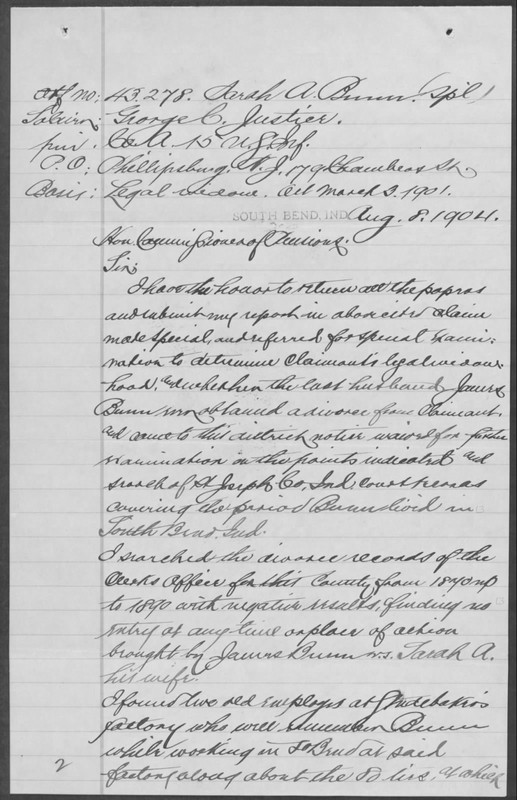 ctf no: 43.278. Sarah A. Bunn. (Spl)
Soldier: George C. Justice.
Co A. 15 U.S. Inf.
P.O: Phillipsburg, N.J, 179 Chambers St.
Basis: Legal widow. Act March 3. 1901.
SOUTH BEND, IND. Aug. 8. 1904.
Hon. Commissioner of Pensions.
Sir:
I have the honor to return all the papers
and submit my report in above cited claim
made special, and referred for special exami-
nation to determine claimant's legal widow-
hood, and whether the last husband James
Bunn obtained a divorce from claimant,
and came to this district notice waived for further
examination on the points indicated and
search of St Joseph Co, Ind. Court records
covering the period Bunn lived in
South Bend, Ind.
I searched the divorce records of the
Clerks Office for this County from 1870 up
to 1890 with negative results, finding no
entry at any time or place of action
brought by James Bunn vs. Sarah A.
his wife.
I found two old employes at Studebaker's
factory who well remember Bunn
while working in So Bend at said
factory along about the 80 ties, of which
2